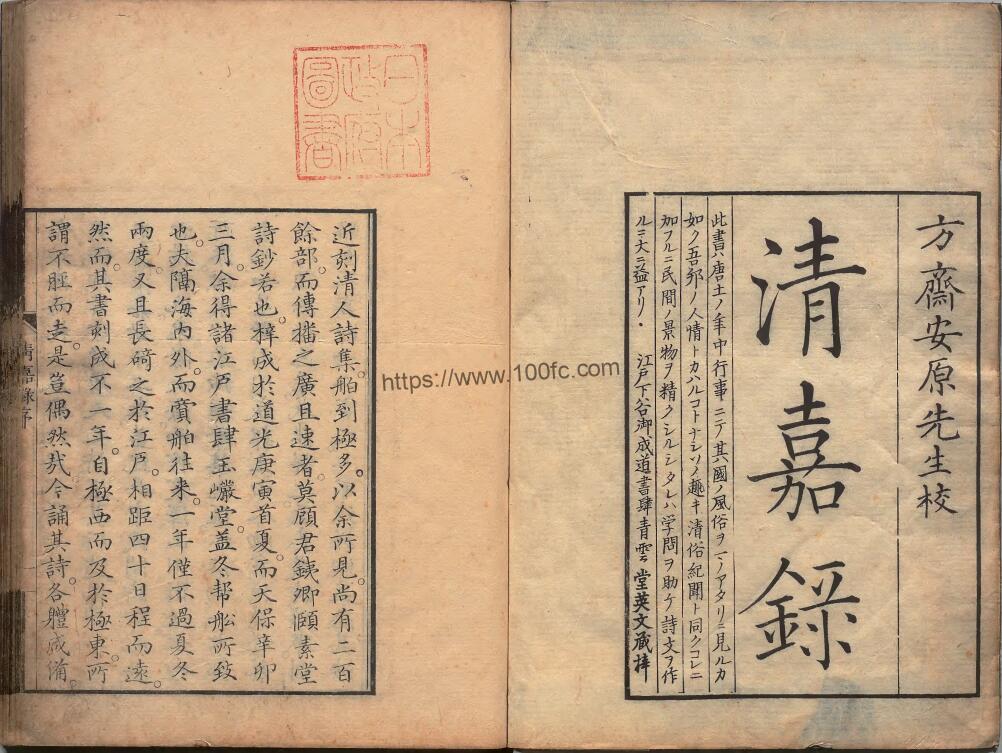 方齋安原先生校
清嘉錄
此書ハ唐土ノ年中行事ニテ其國ノ風俗ヲマノアタリニ見ルカ
如ク吾邦ノ人情トカハルコトナシソノ趣キ清俗紀聞ト同クコレニ
加フルニ民間ノ景物ヲ精クシルシタレハ学問ヲ助ケ詩文ヲ作
ルニ大ニ益アリ・ 江戸下谷御成道書肆青雲堂英文藏梓
日本
政府
圖書
近刻清人詩集。舶到極多。以余所見。尚有二百
餘部。而傳播之廣且速者。莫顧君鐵卿頤素堂
詩鈔若也。梓成於道光庚寅首夏。而天保辛卯
三月。余得諸江戸書肆玉巖堂。盖冬幫船所致
也。夫隔海内外。而賣舶往来。一年僅不過夏冬
兩度。又且長碕之於江戸。相距四十日程而遠。
然而其書刻成不一年。自極西而及於極東。所
謂不脛而走。是豈偶然哉。今誦其詩。各軆咸備。
清嘉錄序
https://www.100fc.com